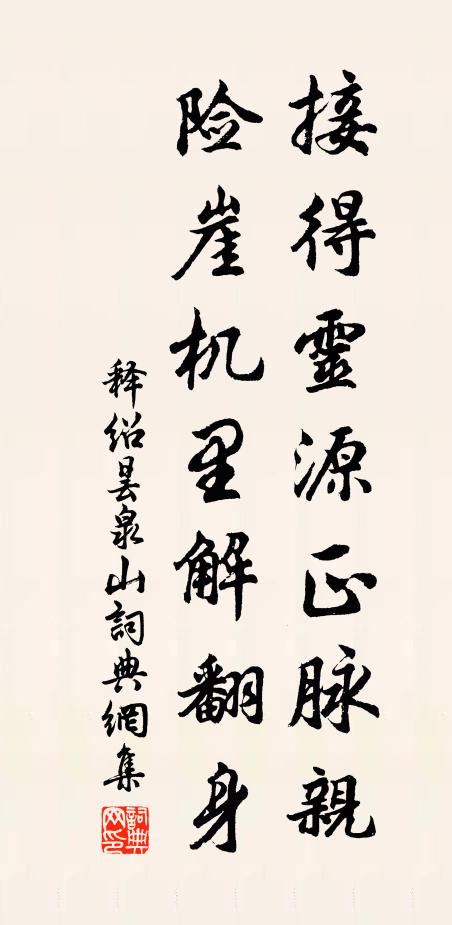 接得靈源正脉親
险崖机里解翻身
释绍昙泉山詞典網集
詞典网印